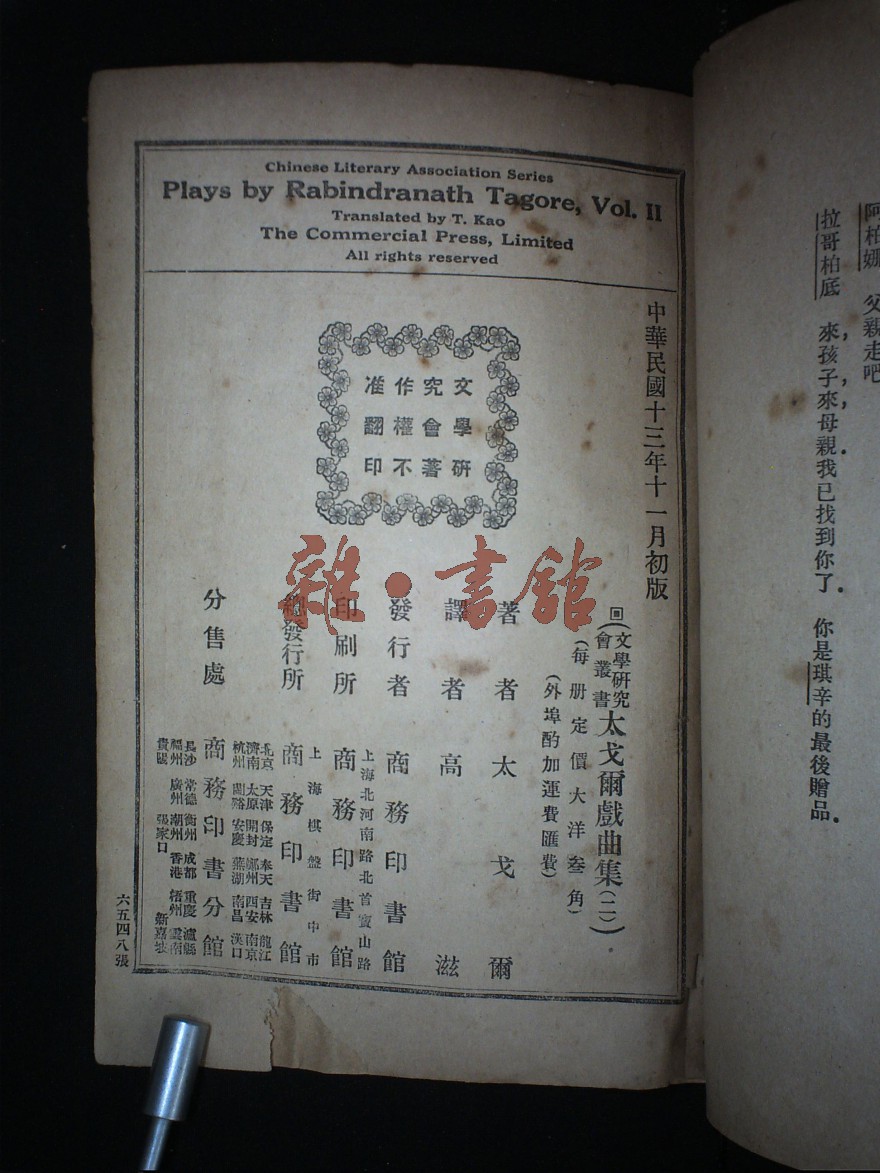 Chinese Literary Association Series
Plays by Rabindranath Tagore, Vol. II
Translated by T. Kao
The Commercial Press, Limited
All rights reserved
中華民國十三年十一月初版
文學研
究會著
作權不
准翻印
回(文學研究會叢書)太戈爾戲曲集(二)
(每册定價大洋叁角)
(外埠酌加運費匯費)
著者 太戈爾
譯者 高滋
發行者 商務印書館
上海北河南路北首寶山路
印刷所 商務印書館
上海棋盤街中市
總發行所 商務印書館
北京 天津 保定 奉天 吉林 龍江
濟南 太原 開封 鄭州 西安 南京
杭州 蘭谿 安慶 蕪湖 南昌 漢口
分售處 商務印書分館
長沙 常德 衡州 成都 重慶 瀘縣
福州 廣州 潮州 香港 梧州 雲南
貴陽 張家口 新嘉坡
六五四八張
雜·書館
阿柏娜 父親走吧
拉哥柏底 來,孩子來,母親,我已找到你了. 你是琪辛的最後贈品.